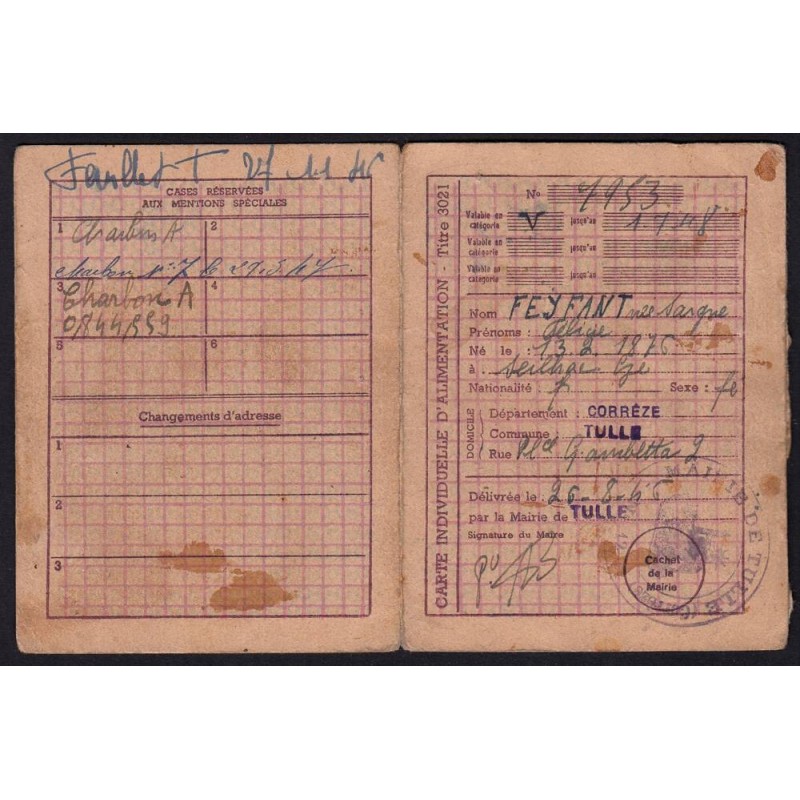 Feuillet T 27 11 46
CASES RÉSERVÉES
AUX MENTIONS SPÉCIALES
1 Charbon A 2
charbon n° 7 le 29.5.47.
3 Charbon A 4
0/844/559
5 6
Changements d'adresse
1
2
3
CARTE INDIVIDUELLE D'ALIMENTATION - Titre 3021
No 7953
Valable en catégorie V jusqu'au
Valable en catégorie jusqu'au
Valable en catégorie jusqu'au
Nom FEYFANT née
Prénoms :
Né le : 13.2.1876
à Seilhac
Nationalité : f Sexe : fé
DOMICILE
Département : CORRÈZE
Commune : TULLE
Rue Place Gambetta 2
Délivrée le : 26-8-46
par la Mairie de TULLE
Signature du Maire
Cachet
de la
Mairie
MAIRIE DE TULLE